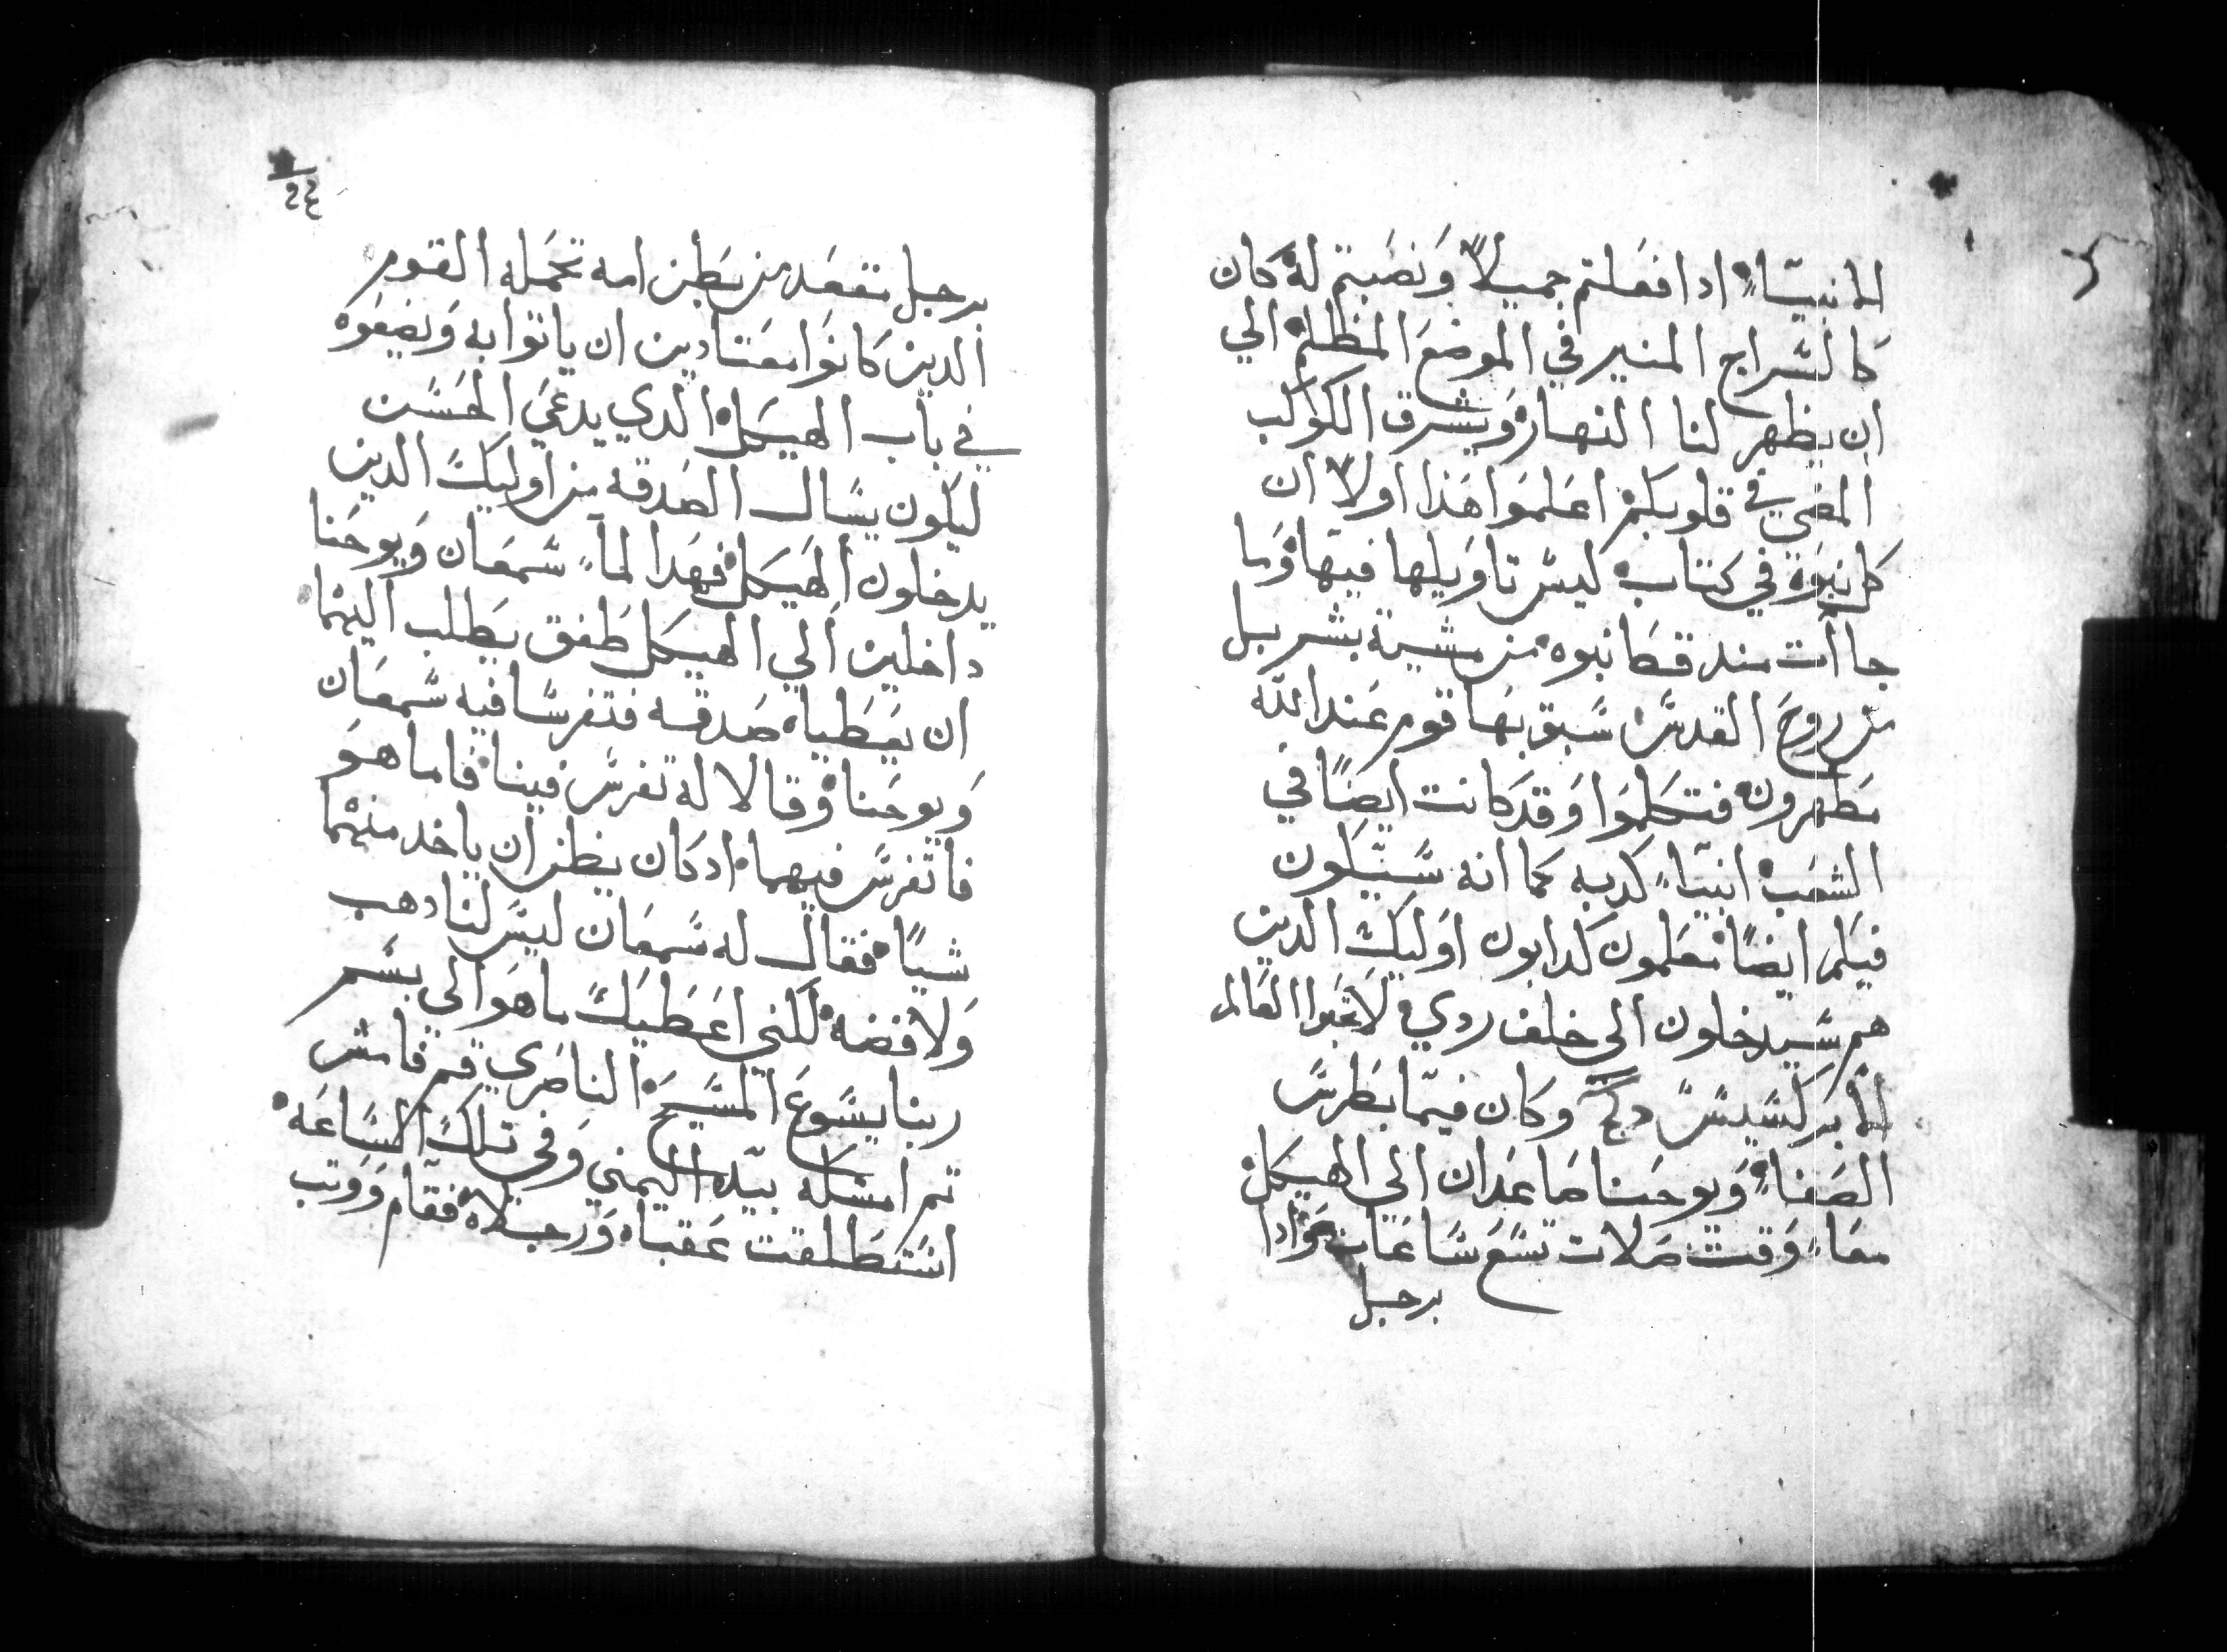 الانبياء اذا فعلتم جميلاً ونصبتم له كان
كالسراج المنير في الموضع المظلم الي
ان يظهر لنا النهار ويشرق الكوكب
المضي في قلوبكم اعلموا هذا اولاً ان
كل نبوة في كتاب ليس تاويلها فيها وما
جاات منذ قط نبوه من مشية بشر بل
من روح القدس سبق بها قوم عند الله
مطهرون فتكلموا وقد كانت ايضاً في
الشعب انبياء كدبه كما انه سيكون
فيكم ايضاً معلمون كدابون اوليك الدين
هم سيدخلون الى خلف ردي لا تحبوا العالم
الابركسيس وكان فيما بطرس
الصفاء ويوحنا صاعدان الي الهيكل
معاً وقت صلات تسع ساعات واذا
برجل
٢٤
برجل مقعد من بطن امه تحمله القوم
الدين كانوا معتادين ان ياتوا به ويضعوه
في باب الهيكل الدي يدعي الحسن
ليكون يسال الصدقه من اوليك الدين
يدخلون الهيكل فهدا لما شمعان ويوحنا
داخلين الي الهيكل طفق يطلب اليهما
ان يعطياه صدقه فتفرسا فيه شمعان
ويوحنا وقالا له تفرس فينا فاما هو
فاتفرس فيهما اد كان يظن ان ياخد منهما
شياً فقال له شمعان ليس لنا دهب
ولا فضه لكني اعطيك ما هو الى بسم
ربنا يسوع المسيح الناصري قم فامش
تم امسكه بيده اليمني وفي تلك الساعه
استطلقت عقباه ورجلاه فقام ووتب